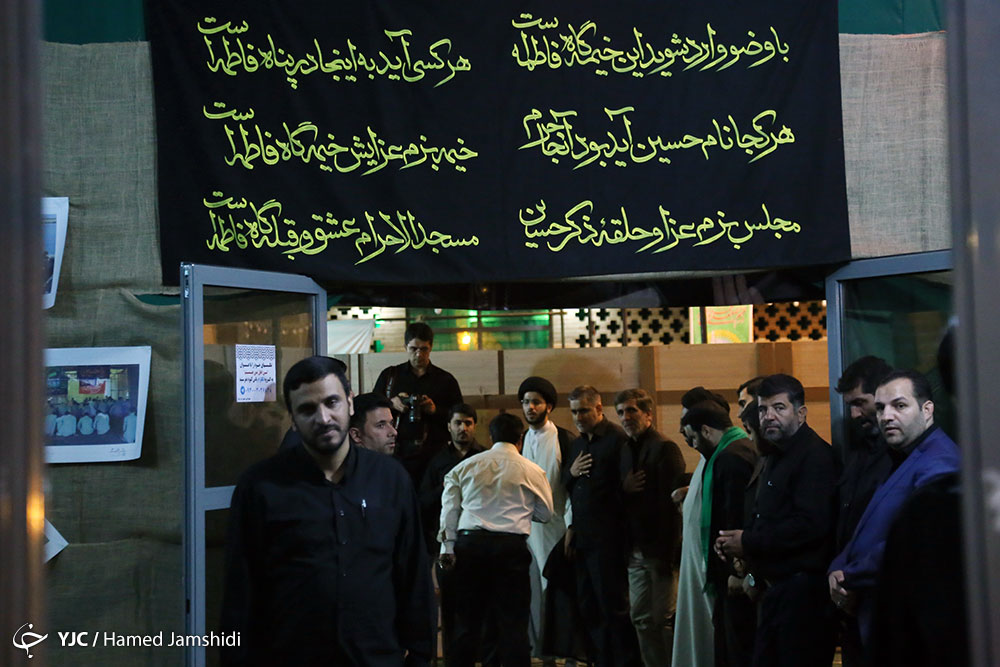 با وضو وارد شوید این خیمه‌گاه فاطمه ست
هر کسی آید به اینجا در پناه فاطمه ست
هر کجا نام حسین آید بود آنجا حرم
خیمهٔ بزم عزایش خیمه‌گاه فاطمه ست
مجلس بزم عزا و حلقهٔ ذکر حسین
مسجد الاحرام عشق و قبله گاه فاطمه ست
YJC / Hamed Jamshidi